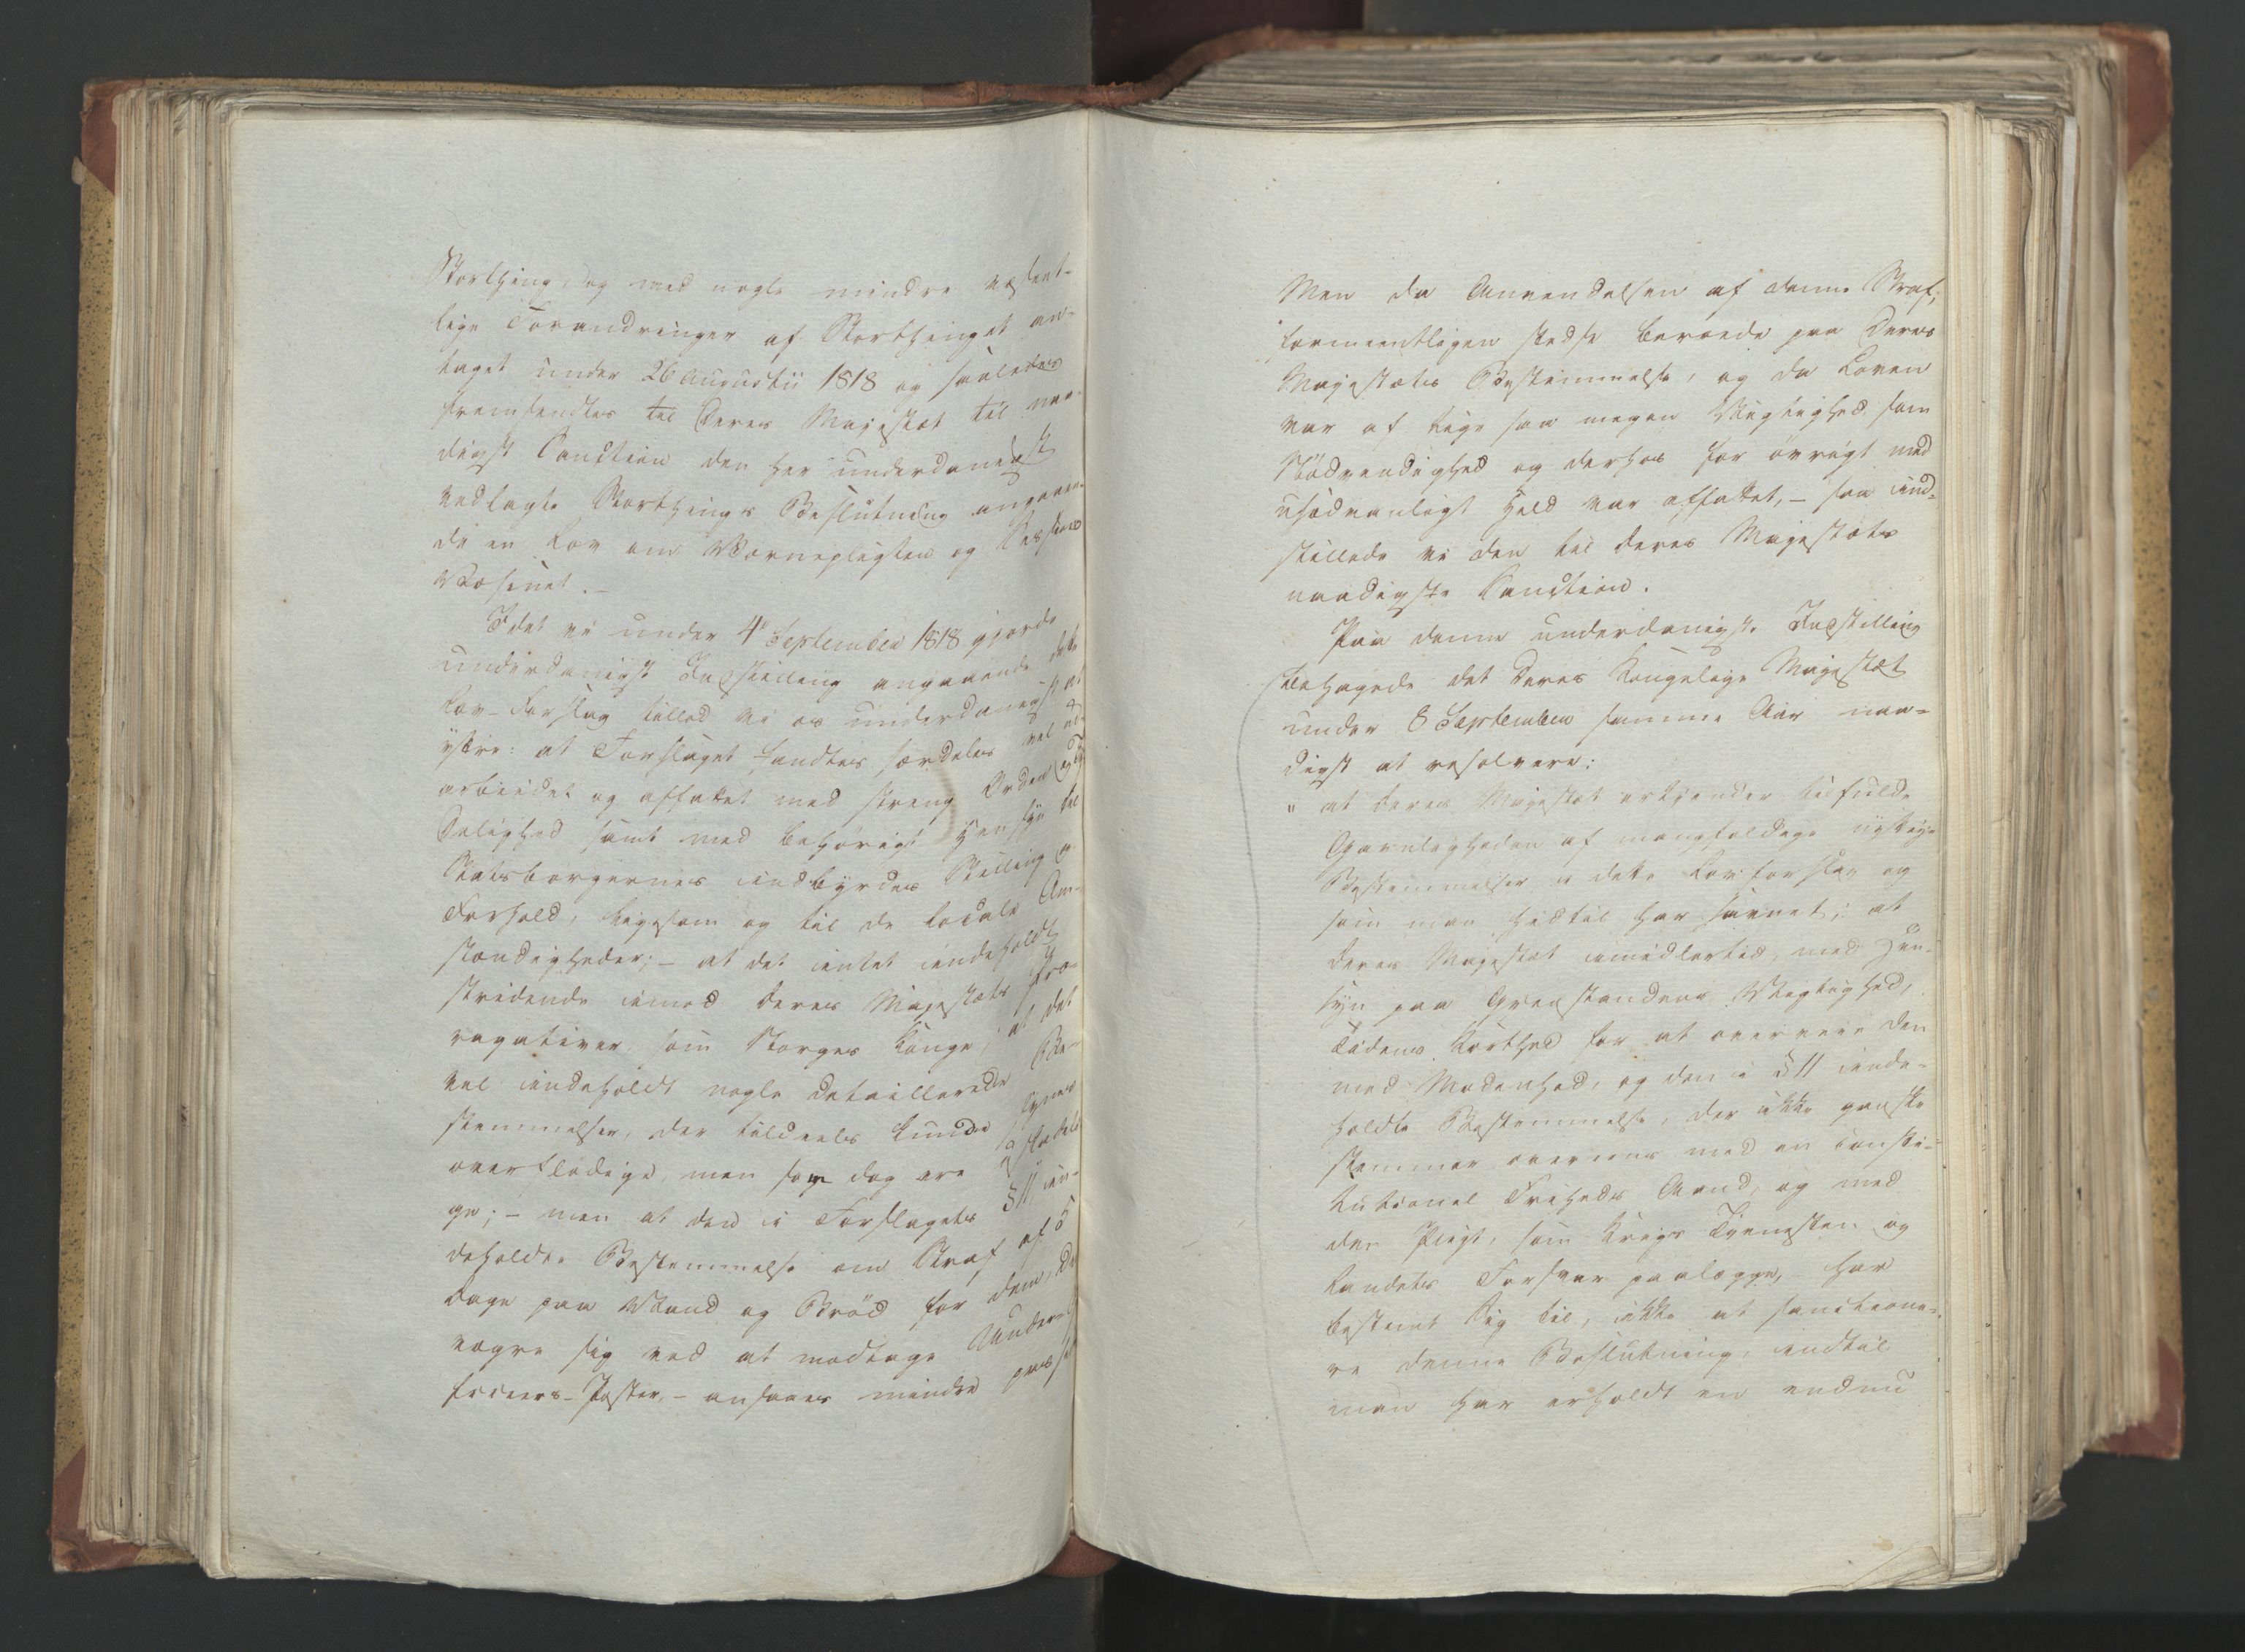 Storthing og med nogle mindre væsent-
lige Forandringer af Storthinget an-
taget under 26 Augustii 1818 og saaledes
fremsendtes til Deres Majestæt til naa-
digst Sanction den her underdanigst
vedlagte Storthings Beslutning angaaen-
de en Lov om Værnepligten og Sessions
Væsenet. –
Idet vi under 4de September 1818 gjorde
underdanigst Indstilling angaaende dette
Lov-Forslag tillod vi os underdanigst at
yttre: at Forslaget fandtes særdeles vel ud-
arbeidet og affattet med streng Orden og Ty-
delighed samt med behørigt Hensyn til
Statsborgernes indbyrdes Stilling og
Forhold, ligesom og til de locale Om-
stændigheder; – at det intet indeholdt
stridende imod Deres Majestæts Præ-
rogativer som Norges Konge; at det
vel indeholdt nogle detaillerede Be-
stemmelser, der tildeels kunde synes
overflødige, men som dog ere
ge; – men at den i Forslagets § 11 in-
deholdte Bestemmelse om Straf af 5
Dage paa Vand og Brød for dem, der
vægre sig ved at modtage Under-
officeers-Poster, – ansaaes mindre passe
Men da Anvendelsen af denne Straf,
formeentligen stedse beroede paa Deres
Majestæts Bestemmelse, og da Loven
var af lige saa megen Vigtighed som
Nødvendighed og derhos for øvrigt med
usædvanligt Held var affattet, – saa ind-
stillede vi den til Deres Majestæts
naadigste Sanction.
Paa denne underdanigste Indstilling
behagede det Deres Kongelige Majestæt
under 8 September samme Aar naa-
digst at resolvere:
" at Deres Majestæt erkjender tilfulde
Gavnligheden af mangfoldige nyttige
Bestemmelser i dette Lovforslag og
som man hidtil har savnet; at
Deres Majestæt imidlertid, med Hen-
syn paa Gjenstandens Vigtighed,
Tidens Korthed for at overveie den
med Modenhed, og den i § 11 inde-
holdte Bestemmelse, der ikke ganske
stemmer overeens med en consti-
tutionel Friheds Aand, og med
den Pligt, som Krigs Tjenesten og
Landets Forsvar paalægge, har
bestemt Sig til, ikke at sanctione-
re denne Beslutning, indtil
man har erholdt en endnu